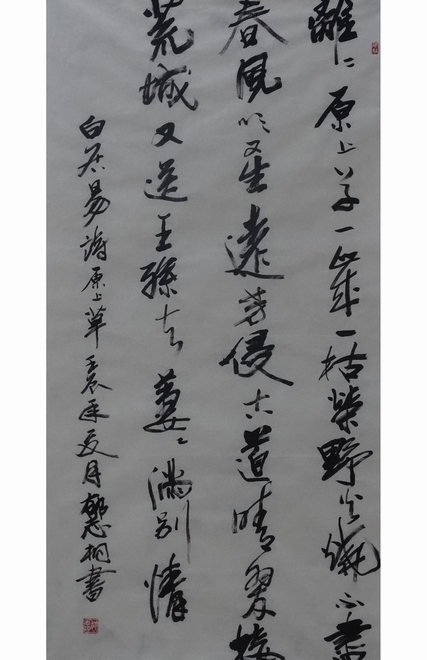 離々原上草一歲一枯榮野火燒不盡
春風吹又生遠芳侵古道晴翠接
荒城又送王孫去萋々滿別情
白居易詩原上草壬辰年夏月郁志桐書